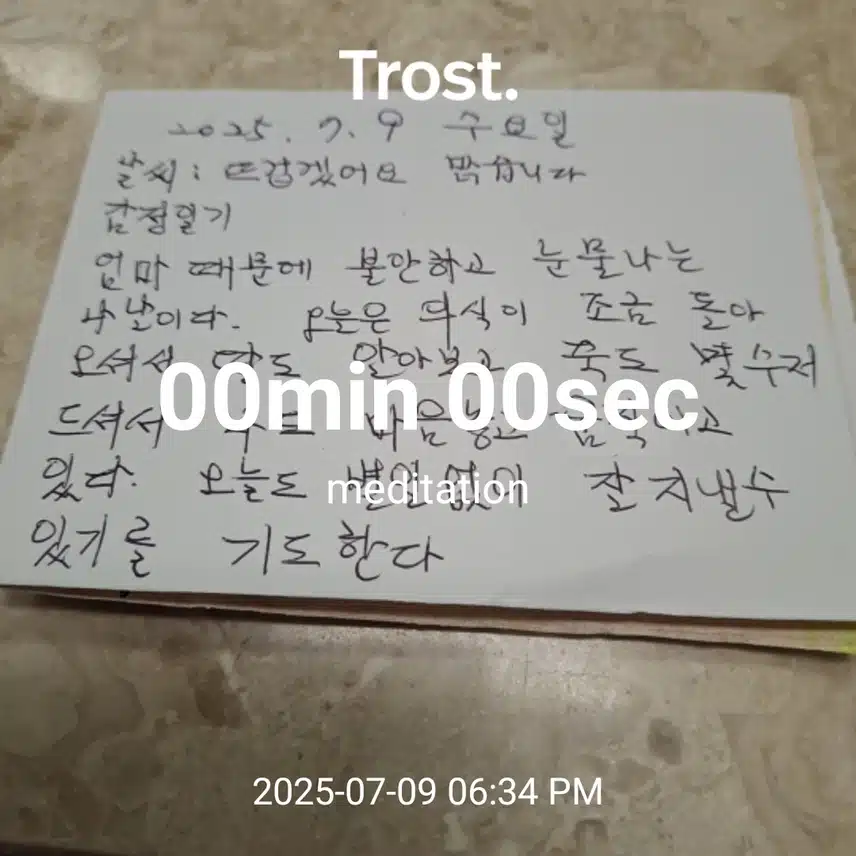 Trost.
2025. 7. 9 수요일
날씨: 뜨겁겠어요 맑습니다
감정일기
엄마 때문에 불안하고 눈물나는
나날이다. 오늘은 의식이 조금 돌아
오셔서 딸도 알아보고 죽도 몇수저
00min 00sec
드셔서 마음놓고
있다. 오늘도 별일없이 잘 지낼수
meditation
있기를 기도한다
2025-07-09 06:34 PM